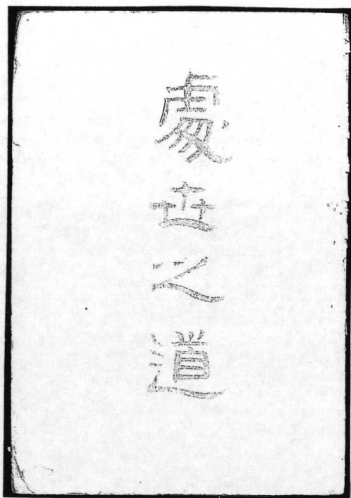 處世之道